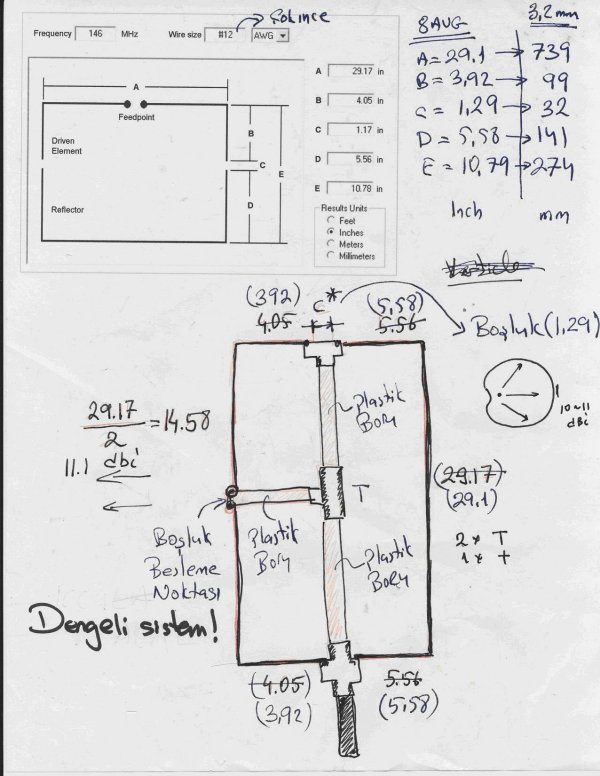 Frequency 146 MHz Wire size #12 AWG
A
Feedpoint
Driven
Element
Reflector
B
C
D
E
A 29.17 in
B 4.05 in
C 1.17 in
D 5.56 in
E 10.78 in
Results Units
Feet
Inches
Meters
Millimeters
8AUG 3,2mm
A=29.1 → 739
B=3,92 → 99
C=1,29 → 32
D=5,58 → 141
E=10,79 → 274
Inch mm
Verticle
(392) C* (5,58)
4.05 5.56
Boşluk(1,29)
10~11
dBi
Plastik
Boru
29.17/2 = 14.58
11.1 dbi
T
(29.17)
(29.1)
Boşluk
Besleme
Noktası
Plastik
Boru
Plastik
Boru
2 * T
1 * +
Dengeli sistem!
(4.05) 5.56
(3,92) (5,58)